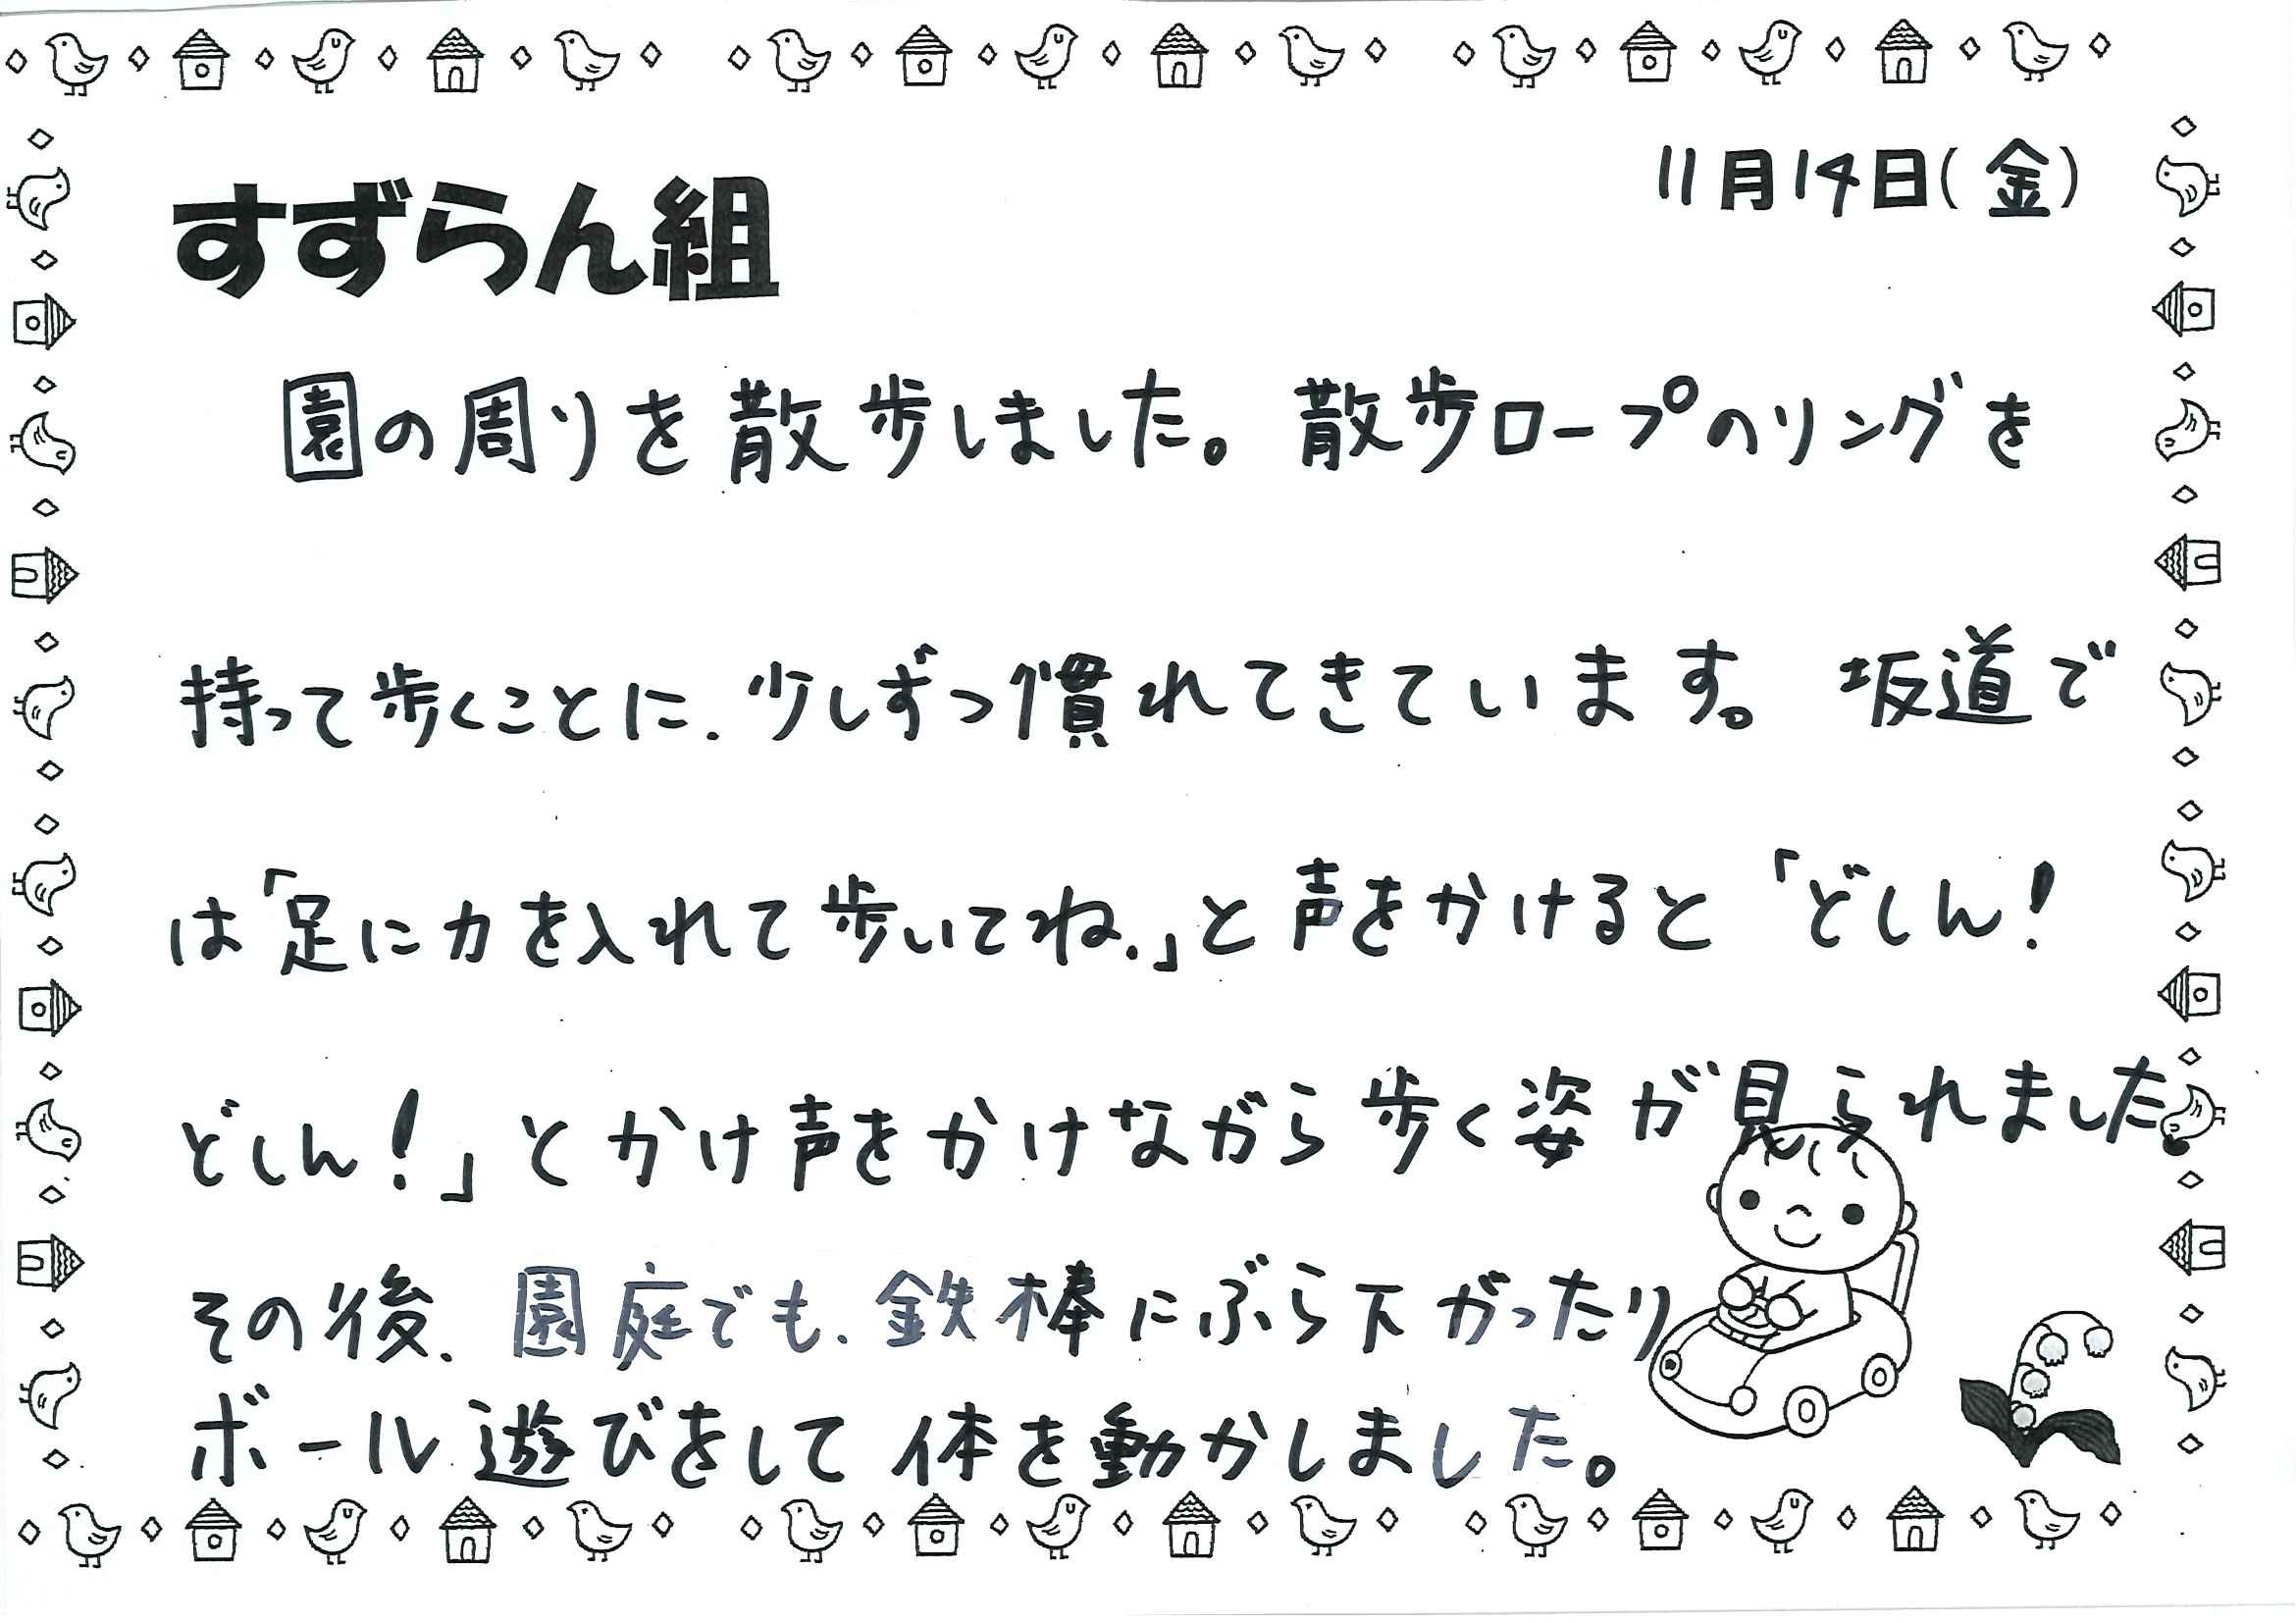 11月14日(金)
すずらん組
園の周りを散歩しました。散歩ロープのリングを
持って歩くことに、少しずつ慣れてきています。坂道で
は「足に力を入れて歩いてね。」と声をかけると「どしん!
どしん!」とかけ声をかけながら歩く姿が見られました。
その後、園庭でも、鉄棒にぶら下がったり
ボール遊びをして体を動かしました。